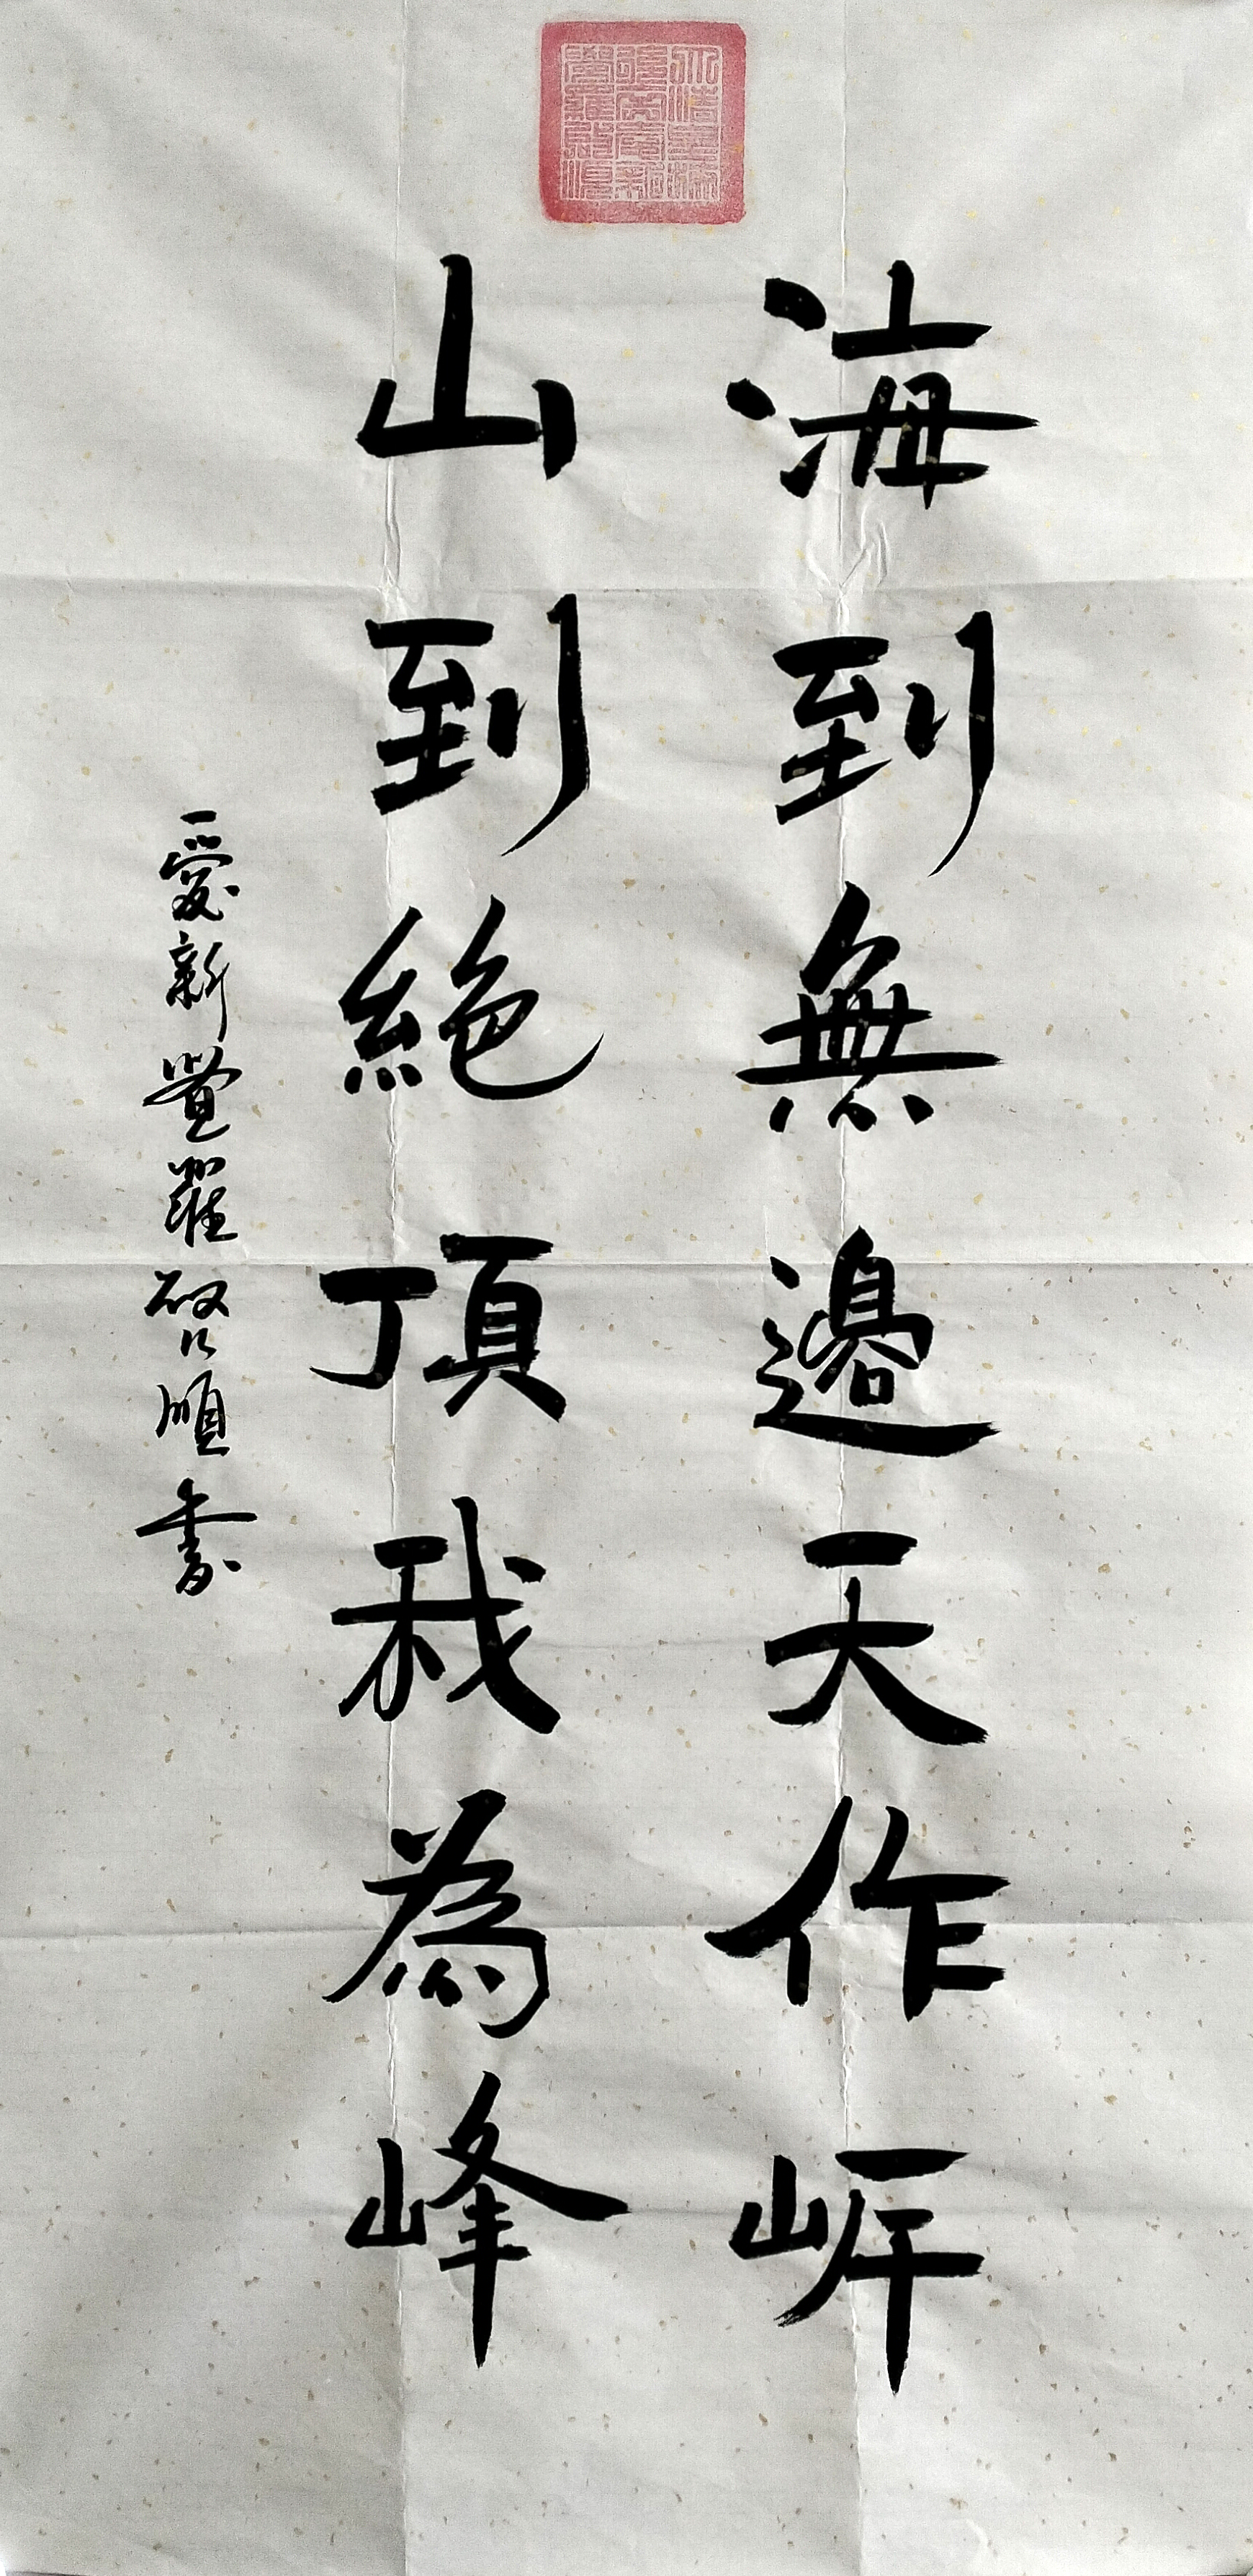 海到無邊天作岸
山到絕頂我為峰
愛新覺羅啟順書